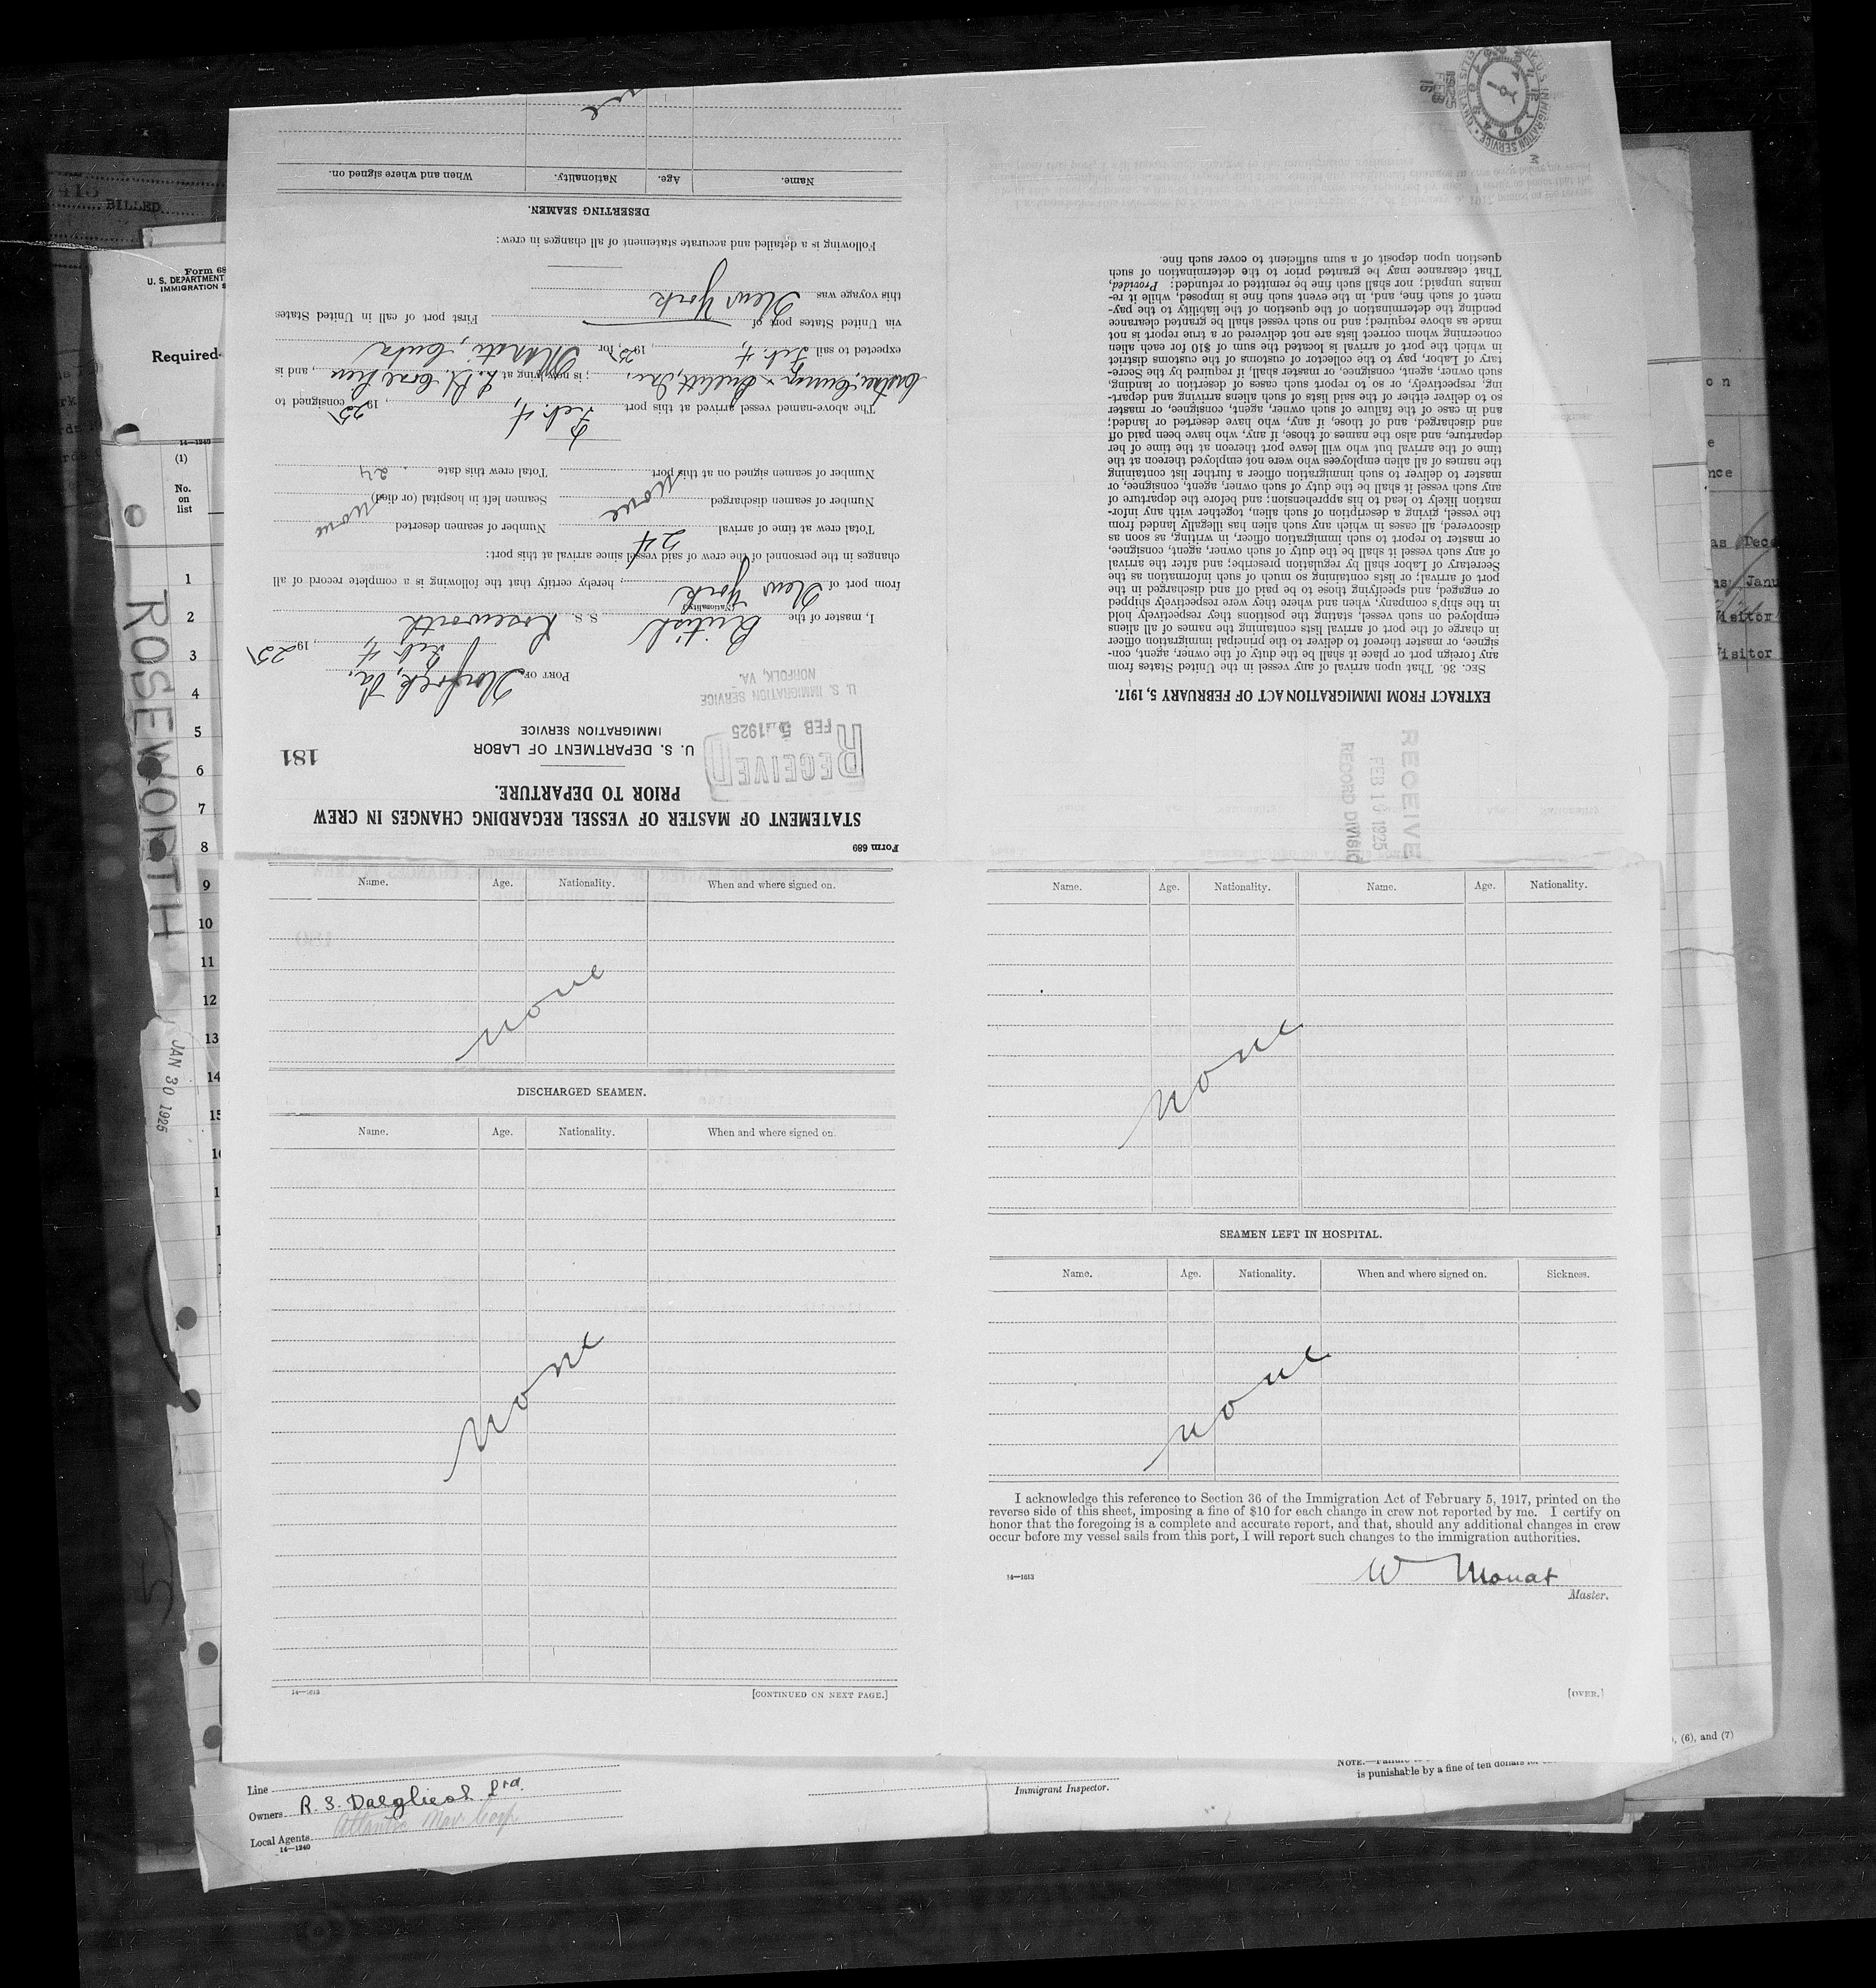 Form 689
STATEMENT OF MASTER OF VESSEL REGARDING CHANGES IN CREW
PRIOR TO DEPARTURE.
U. S. DEPARTMENT OF LABOR
IMMIGRATION SERVICE
181
RECEIVED
FEB 5 1925
U. S. IMMIGRATION SERVICE
NORFOLK, VA.
PORT OF Norfolk, Va.
Feb. 4, 1925
I, master of the British S. S. Roseworth
(Nationality)
from port of New York, hereby certify that the following is a complete record of all
changes in the personnel of the crew of said vessel since arrival at this port:
Total crew at time of arrival 24 Number of seamen deserted none
Number of seamen discharged none Seamen left in hospital (or died) none
Number of seamen signed on at this port none Total crew this date 24
The above-named vessel arrived at this port Feb. 4, 1925, consigned to
; is now lying at Coal Pier, and is
expected to sail Feb. 4, 1925, for Manati, Cuba
via United States port of First port of call in United States
this voyage was New York
Following is a detailed and accurate statement of all changes in crew:
DESERTING SEAMEN.
Name. Age. Nationality. When and where signed on.
EXTRACT FROM IMMIGRATION ACT OF FEBRUARY 5, 1917.
SEC. 36. That upon arrival of any vessel in the United States from
any foreign port or place it shall be the duty of the owner, agent, con-
signee, or master thereof to deliver to the principal immigration officer
in charge of the port of arrival lists containing the names of all aliens
employed on such vessel, stating the positions they respectively hold
in the ship's company, when and where they were respectively shipped
or engaged, and specifying those to be paid off and discharged in the
port of arrival; or lists containing so much of such information as the
Secretary of Labor shall by regulation prescribe; and after the arrival
of any such vessel it shall be the duty of such owner, agent, consignee,
or master to report to such immigration officer, in writing, as soon as
discovered, all cases in which any such alien has illegally landed from
the vessel, giving a description of such alien, together with any infor-
mation likely to lead to his apprehension; and before the departure of
any such vessel it shall be the duty of such owner, agent, consignee, or
master to deliver to such immigration officer a further list containing
the names of all alien employees who were not employed thereon at the
time of the arrival but who will leave port thereon at the time of her
departure, and also the names of those, if any, who have been paid off
and discharged, and of those, if any, who have deserted or landed;
and in case of the failure of such owner, agent, consignee, or master
so to deliver either of the said lists of such aliens arriving and depart-
ing, respectively, or so to report such cases of desertion or landing,
such owner, agent, consignee, or master, shall, if required by the Secre-
tary of Labor, pay to the collector of customs of the customs district
in which the port of arrival is located the sum of $10 for each alien
concerning whom correct lists are not delivered or a true report is not
made as above required; and no such vessel shall be granted clearance
pending the determination of the question of the liability to the pay-
ment of such fine, and, in the event such fine is imposed, while it re-
mains unpaid; nor shall such fine be remitted or refunded: Provided,
That clearance may be granted prior to the determination of such
question upon deposit of a sum sufficient to cover such fine.
U. S. IMMIGRATION SERVICE
ELLIS ISLAND
1925
FEB
16
RECEIVE
FEB 16 1925
RECORD DIVISIO
Name. Age. Nationality. When and where signed on.
none
DISCHARGED SEAMEN.
Name. Age. Nationality. When and where signed on.
none
14—1613
[CONTINUED ON NEXT PAGE.]
Name. Age. Nationality. Name. Age. Nationality.
none
SEAMEN LEFT IN HOSPITAL.
Name. Age. Nationality. When and where signed on. Sickness.
none
I acknowledge this reference to Section 36 of the Immigration Act of February 5, 1917, printed on the
reverse side of this sheet, imposing a fine of $10 for each change in crew not reported by me. I certify on
honor that the foregoing is a complete and accurate report, and that, should any additional changes in crew
occur before my vessel sails from this port, I will report such changes to the immigration authorities.
14—1613
W Mouat
Master.
[OVER.]
BILLED
Form 68
U. S. DEPARTMENT
IMMIGRATION S
Required
14—1240
(1)
No.
on
list
1
2
3
4
5
6
7
8
9
10
11
12
13
14
15
ROSEWORTH
JAN 30 1925
Line
Owners R. S. Dalgliesh Ltd.
Local Agents Atlantic Nav. Corp.
14—1240
Immigrant Inspector.
, (6), and (7)
is punishable by a fine of ten dollars for
on
nce
as Dece
Janu
Visitor
Visitor